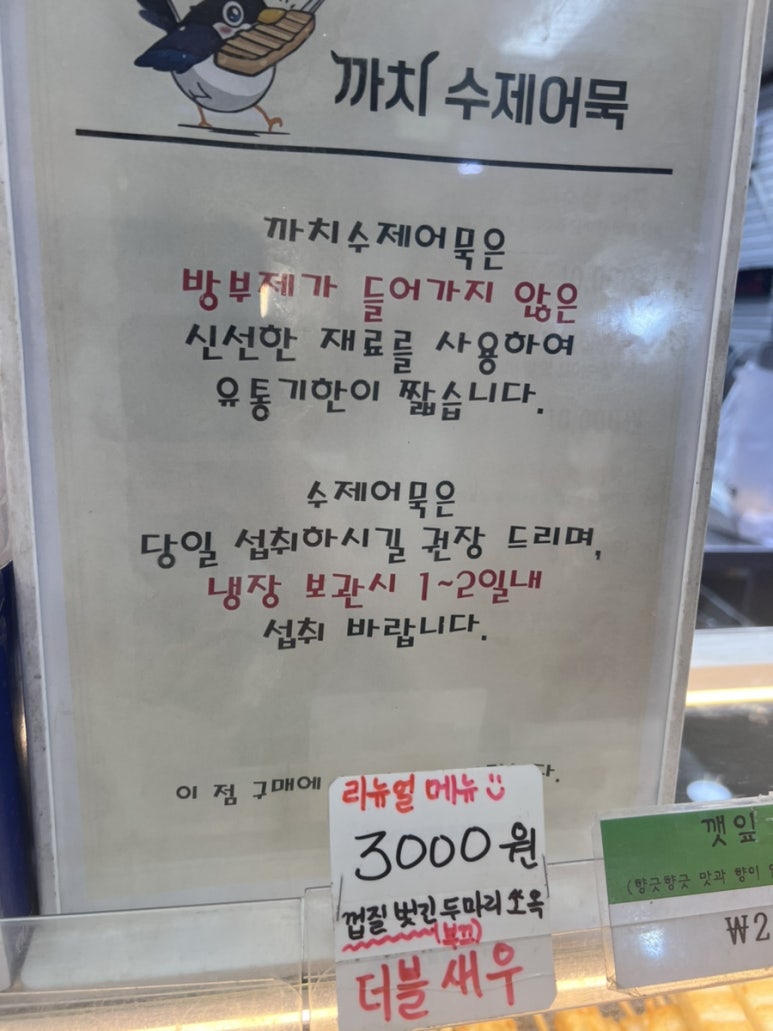 까치 수제어묵
까치수제어묵은
방부제가 들어가지 않은
신선한 재료를 사용하여
유통기한이 짧습니다.
수제어묵은
당일 섭취하시길 권장 드리며,
냉장 보관시 1~2일내
섭취 바랍니다.
이 점 구매에
리뉴얼 메뉴
3000원
껍질 벗긴 두마리 쏘옥
더블새우
깻잎
(향긋향긋 맛과 향이
₩2